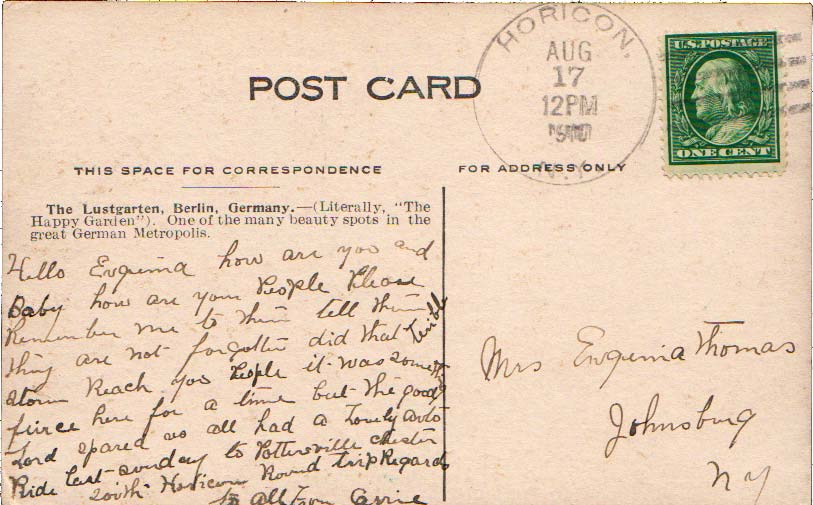 HORICON,
AUG
17
12PM
N.Y.
U.S. POSTAGE
ONE CENT
POST CARD
THIS SPACE FOR CORRESPONDENCE
FOR ADDRESS ONLY
The Lustgarten, Berlin, Germany.—(Literally, "The
Happy Garden"). One of the many beauty spots in the
great German Metropolis.
Hello Evquinia how are you and
Baby how are your People Please
Remember me to them tell them
thiy are not forgotten did that terible
storm Reach you People it was something
fierce here for a time but the good
Lord spared us all had a Lovely Auto
Ride last sunday to Pottersville chester
South Horicon Round trip Regards
to all from Carrie
Mrs Evquinia Thomas
Johnsburg
NY